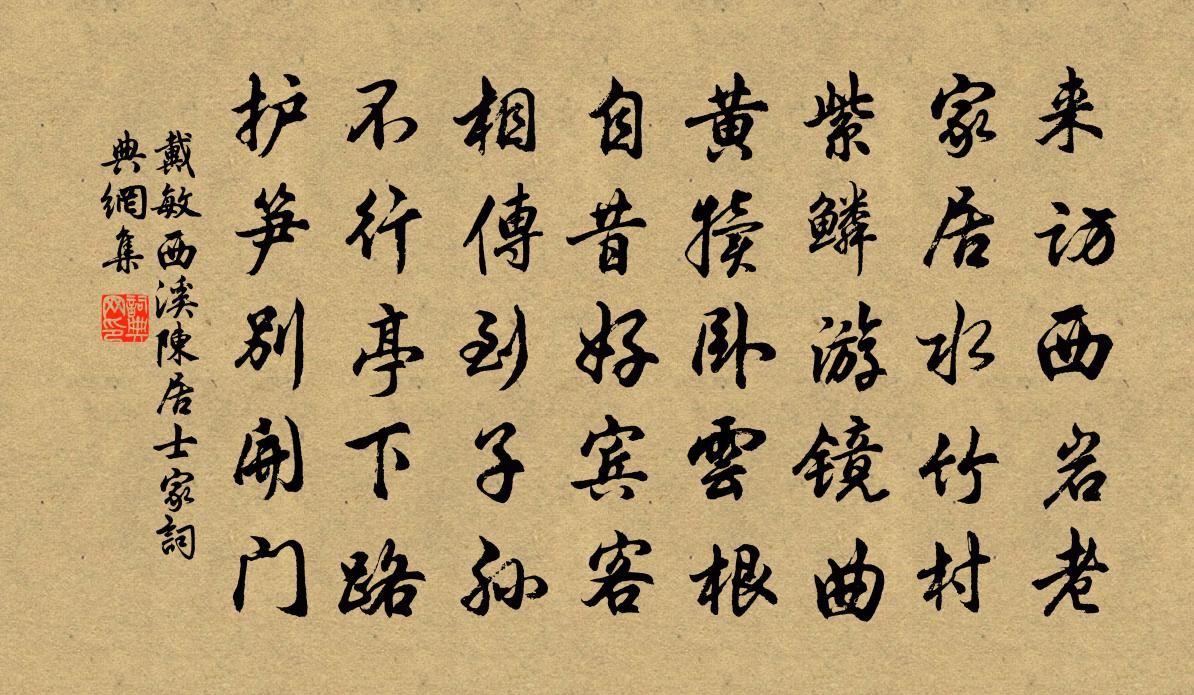 来访西岩老
家居水竹村
紫鳞游镜曲
黄犊卧雲根
自昔好宾客
相傳到子孙
不行亭下路
护笋别開门
戴敏西溪陳居士家詞
典網集
詞典
网印